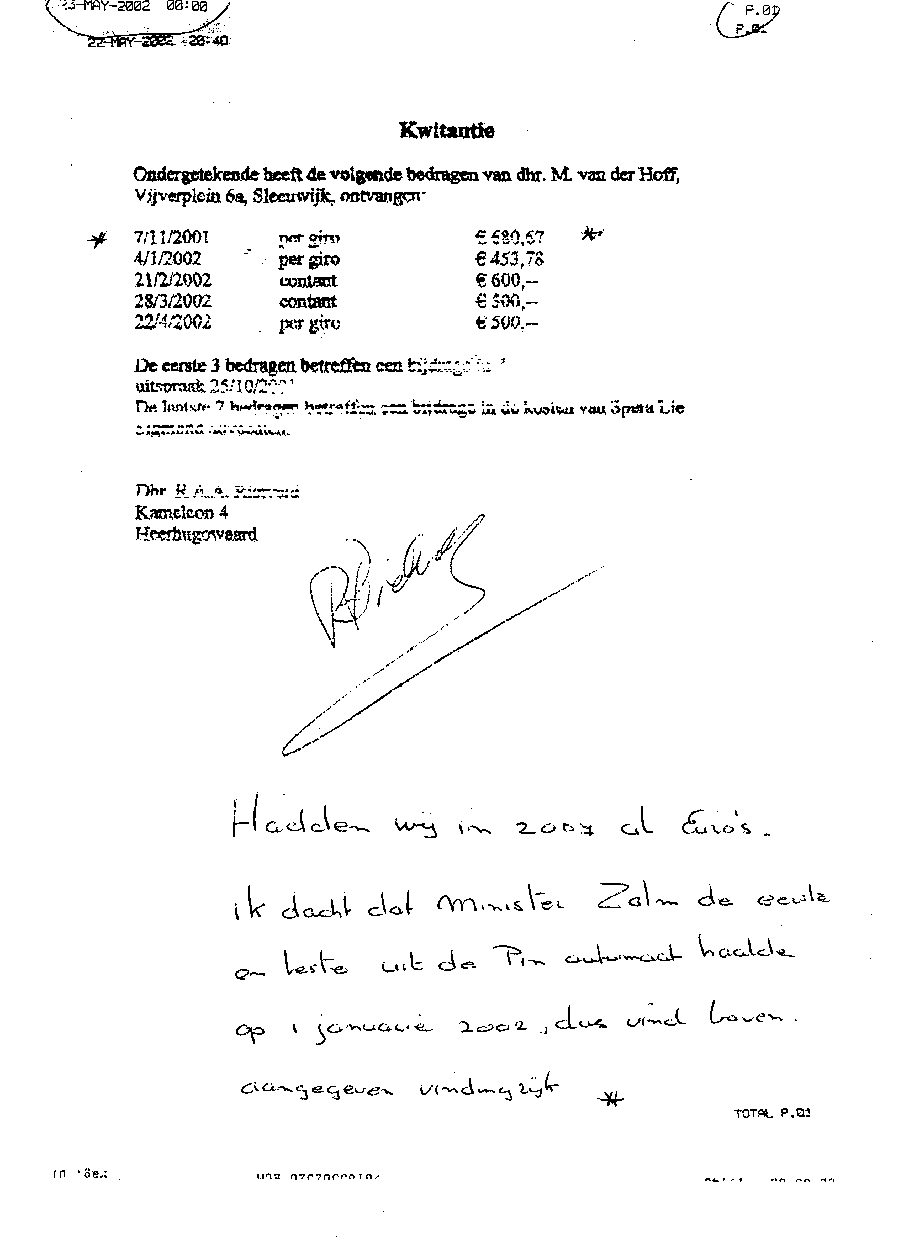 23-MAY-2002 00:00
P.01
22-MAY-2002 20:40
P.01
Kwitantie
Ondergetekende heeft de volgende bedragen van dhr. M. van der Hoff,
Vijverplein 6a, Sleeuwijk, ontvangen:
* 7/11/2001 per giro € 680,67 *
4/1/2002 per giro € 453,78
21/2/2002 contant € 600,--
28/3/2002 contant € 500,--
22/4/2002 per giro € 500,--
De eerste 3 bedragen betreffen een bijdrage
uitspraak 25/10/2001
De laatste 2 bedragen betreffen een bijdrage in de kosten van
Dhr R.A.A.
Kameleon 4
Heerhugowaard
Hadden wij in 2001 al Euro's.
ik dacht dat Minister Zalm de eerste
en leste uit de Pin automaat haalde
op 1 januarie 2002, dus vind boven.
aangegeven vindingrijk *
TOTAL P.01